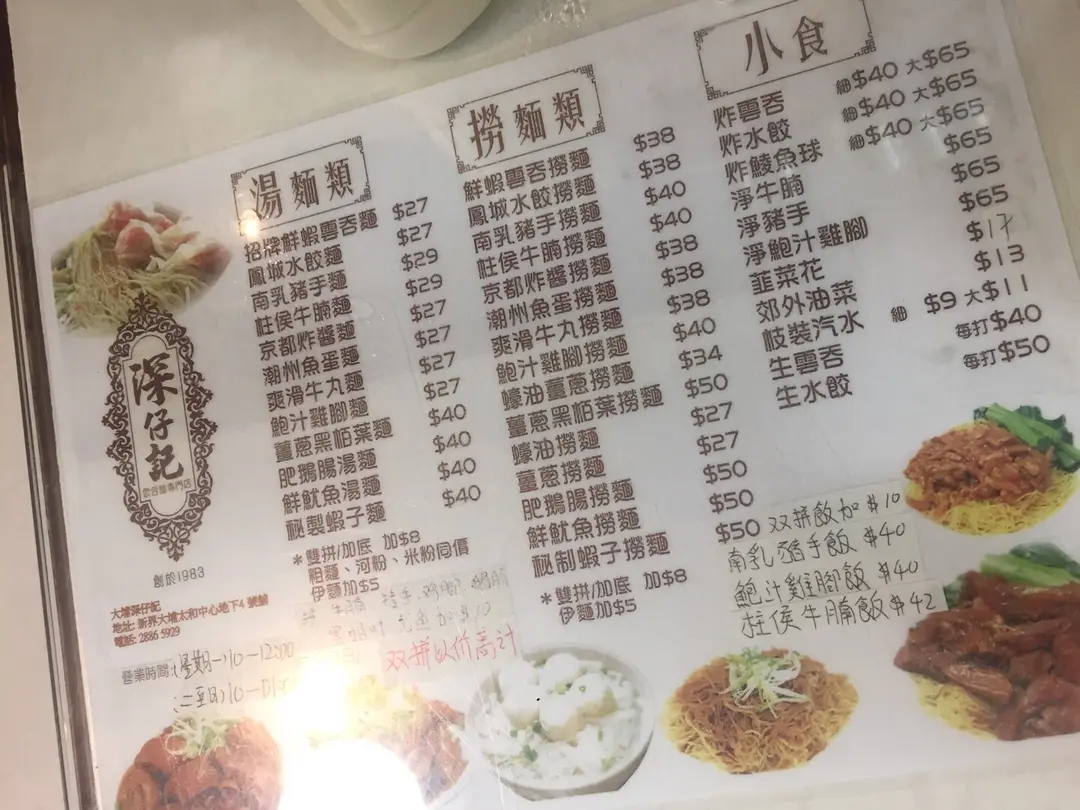 湯麵類
招牌鮮蝦雲吞麵 $27
鳳城水餃麵 $27
南乳豬手麵 $29
柱侯牛腩麵 $29
京都炸醬麵 $27
潮州魚蛋麵 $27
爽滑牛丸麵 $27
鮑汁雞腳麵 $27
薑蔥黑栢葉麵 $40
肥鵝腸湯麵 $40
鮮魷魚湯麵 $40
秘製蝦子麵 $40
*雙拼/加底 加$8
粗麵、河粉、米粉同價
伊麵加$5
撈麵類
鮮蝦雲吞撈麵 $38
鳳城水餃撈麵 $38
南乳豬手撈麵 $40
柱侯牛腩撈麵 $40
京都炸醬撈麵 $38
潮州魚蛋撈麵 $38
爽滑牛丸撈麵 $38
鮑汁雞腳撈麵 $40
蠔油薑蔥撈麵 $34
薑蔥黑栢葉撈麵 $50
蠔油撈麵 $27
薑蔥撈麵 $27
肥鵝腸撈麵 $50
鮮魷魚撈麵 $50
秘制蝦子撈麵 $50
*雙拼/加底 加$8
伊麵加$5
小食
炸雲吞 細$40 大$65
炸水餃 細$40 大$65
炸鯪魚球 細$40 大$65
淨牛腩 $65
淨豬手 $65
淨鮑汁雞腳 $65
韮菜花 $17
郊外油菜 $13
枝裝汽水 細 $9 大$11
生雲吞 每打$40
生水餃 每打$50
双拼飯加$10
南乳豬手飯 $40
鮑汁雞腳飯 $40
柱侯牛腩飯 $42
双拼以价高计
深仔記
雲吞麵專門店
創於1983
大埔深仔記
地址: 新界大埔太和中心地下4 號舖
電話: 2886 5929
營業時間: